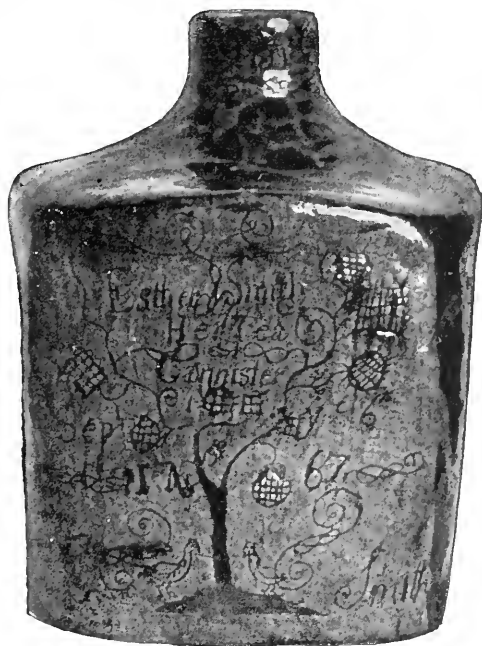 Esther Smith
Her Tea
Cannister
Sept 6th
17 67
Smith